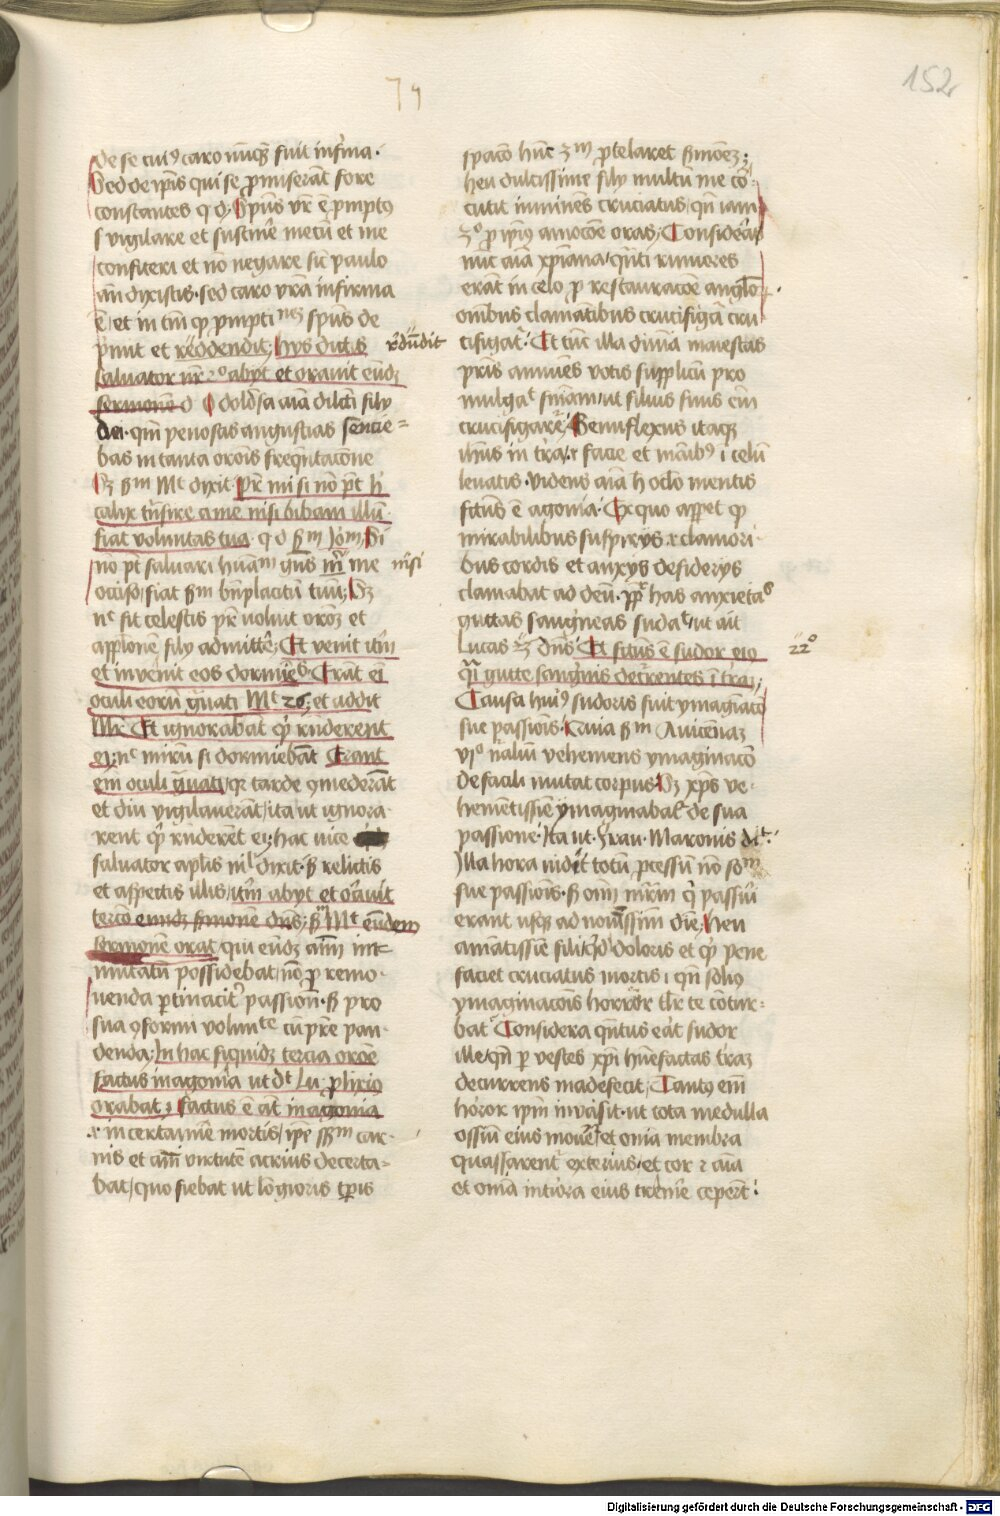 152
de se cui⁹ caro nūq̄ fuit infirma ·
Sed de ip̄is qui se ꝓmiserāt fore
constantes q d· Sp̄us vr̄ ē ꝓmptꝰ
s vigilare et sustinē mecū et me
confiteri et nō negare sic̄ paulo
an̄ dixistis · sed caro vr̄a infirma
ē / et in tm̄ qꝫ ꝓmpti sp̄us de
p̄mit et reddendit hys dictis
saluator nr̄ 2º abyt et orauit eūdꝫ
sermonē d O dolōsa aīa dilc̄ti fily
dei · qm̄ penosas angustias sencie=
bas in tanta or̄ois freq̄ntac̄one
Mᵗ dixit pr̄ mi si nō pt̄ h̄
calix tr̄nsire a me nisi bibam illū
fiat voluntas tua · q d
nō pt̄ saluari humᵐ gn̄s me nisi
occiso / fiat sᵐ bn̄placitū tuū
nᶜ sit celestis pr̄ noluit or̄oꝫ et
fily admittē Et venit itm̄
et inuēit eos dormiētes Erāt eī
oculi eorū g̊uati Mᵗ 26 et addit
Mr̄ Et ignorabāt qͥ rn̄derent
ei nᶜ mirū si dormiebāt Erant
em̄ oculi g̊uati / qꝛ tarde ꝯmederāt
et diu vigilauerāt / ita ut ignora·
rent qͥ rn̄derēt ei hac vice
saluator aplis nᶦˡ dixit · ß relictis
et aspectis illis / itm̄ abyt et orauit
tercō eundꝫ s̄monē dn̄s Mᵗ eūdem
sermonē orat / qui eūdꝫ
mutatū possidebat / nō ꝓ remo·
uenda ꝑtinacitᵉʳ passion̄ · ß pro
sua ꝯformi volunᵗᵉ cū pr̄e pan·
denda In hac siquidꝫ tercia or̄oē
factus in agonia ut dᵗ Lu · ꝓlixiꝰ
orabat factus ē at̄ in agonia
i in certamīe mortis / ip̄e car·
nis et virtutē acrius decerta=
bat / quo fiebat ut lōgioris tp̄is
r̄dūdit
spac̄o hūc 3ᵐ ꝓtelaret s̄monēꝫ
heu dulcissime fily multū me cō·
cutit iminēs cruciatus / qn̄ iam
3º ꝓ ip̄iꝰ amoc̄oē oras Consid̄a
nūc aīa xp̄iana / qn̄ti rumores
erāt in celo ꝓ restaurac̄oē anglo
omībus clamātibus crucifigat̄ cru
cifigat̄ Et tūc illa diuīa maiestas
pr̄is annuēs votis supplicū pro
mulgaᵗ / ut filius suus em̄
crucifigaret̄ Genuflexus itaqꝫ
ihūs in tr̄a / facie et mānibꝰ ī celū
leuatis · videns aīam oclo mentis
fctūs ē agonia · Ex quo appet̄ qꝫ
mirabilibus suspirys et clamori·
bus cordis et anxys desiderys
clamabat ad deū · ppᵗ has anxietaˢ
guttas sang̊neas sudaᵗ / ut ait
Lucas Et fctūs ē sudor eiꝰ 22º
qͣ gutte sang̊nis decurentes ī trā
Causa huiꝰ sudoris fuit ymagiac̄o
sue passiōis Quia sᵐ Auicēnaꝫ
viº n̄aliū vehemens ymaginac̄o
de facili mutat corpus Sꝫ xp̄s ve·
hementissīe ymaginabatʳ de sua
passione · Ita ut · Fran · Maronis diᵗ
Illa hora vidit totū ꝓcessū nō soᵐ
sue passiōis · ß om̄ mr̄m qͥ passuri
erant usqꝫ ad nouissimū diē Heu
amātissīe fili qͦd doloris et qͥ pene
faciet cruciatus mortis / qn̄ soliꝰ
ymaginac̄ois horror tlr̄ te cōtur·
bat Considera qn̄tus erāt sudor
ille / qn̄ ꝑ vestes xp̄i humefactas trāꝫ
decurrens madefecit Tantꝰ em̄
horror ip̄m inuasit · ut tota medulla
ossiū eius mouēt̄ et oīa membra
quassarent̄ exterius / et cor et aīa
et oīa intiora eius tremē ceperūt
Digitalisierung gefördert durch die Deutsche Forschungsgemeinschaft · DFG